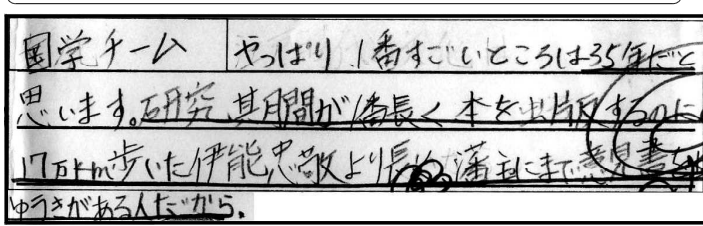 国学チーム やっぱり1番すごいところは35年だと
思います。研究期間が1番長く本を出版するのに
17万km歩いた伊能忠敬より長い 藩主にまで意見書を
ゆうきがある人だから。